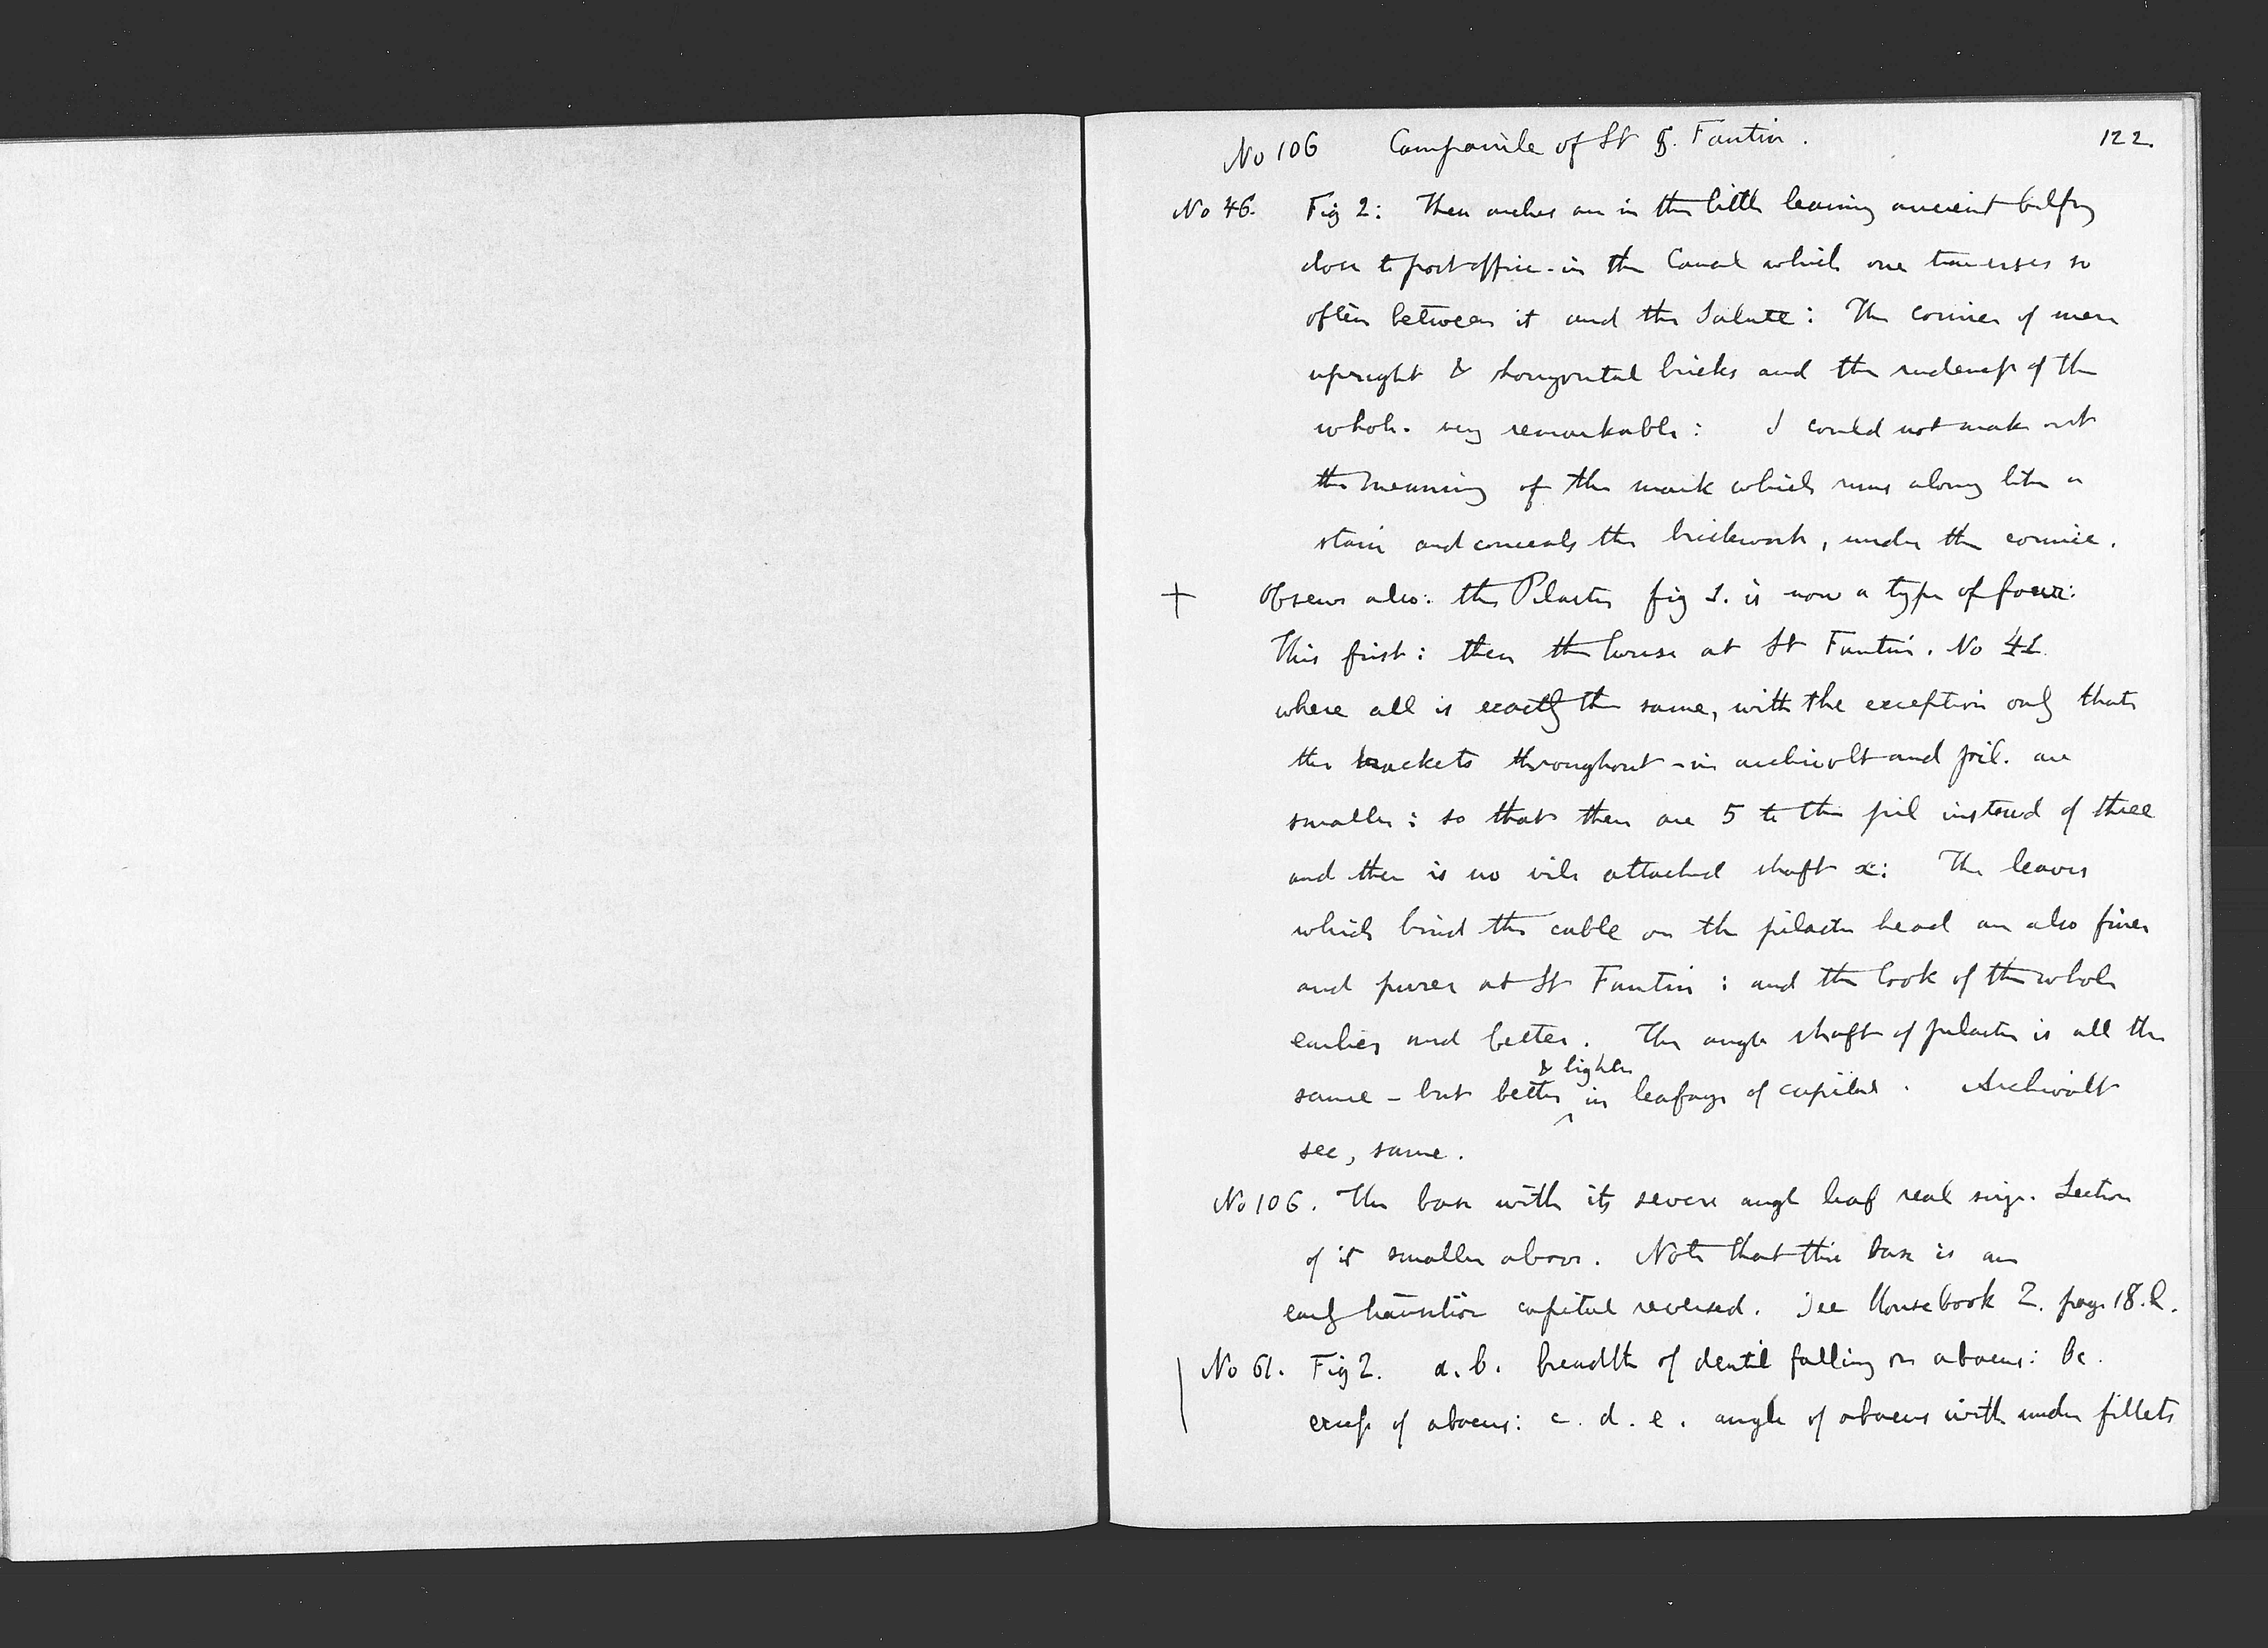 No 106 Campanile of St G. Fantin. 122.
No 46. Fig 2: These arches are in the little leaning ancient belfry
close to post office - in the Canal which one traverses so
often between it and the Salute: The cornice of mere
upright & horizontal bricks and the rudeness of the
whole - very remarkable: I could not make out
the meaning of the mark which runs along like a
stain and conceals the brickwork, under the cornice.
+ Observe also: the Pilaster fig 1. is now a type of four:
This first: then the house at St Fantin. No 41.
where all is exactly the same, with the exception only that
the brackets throughout - in archivolt and pil. are
smaller: so that there are 5 to the pil instead of three
and there is no vile attached shaft x: The leaves
which bind the cable on the pilaster head are also finer
and purer at St Fantin: and the look of the whole
earlier and better. The angle shaft of pilaster is all the
same - but better & lighter in leafage of capital. Archivolt
see, same.
No 106. The base with its severe angle leaf real size. Section
of it smaller above. Note that this base is an
early transition capital reversed. See House book 2. page 18.
No 61. Fig 2. a. b. breadth of dentil falling on abacus: bc.
excess of abacus: c. d. e. angle of abacus with under fillets